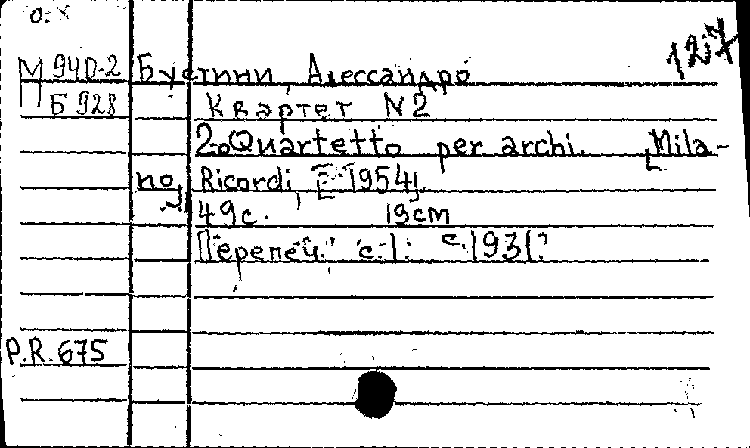 О.Х
127
М 940-2 Бустини, Алессандро
Б 928 Квартет N2
2o Quartetto per archi. [Mila-
no,] Ricordi, [1954].
49с. 19см
Перепеч. с c.1931.
P.R.675